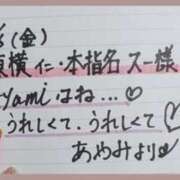 (金)
東横イニ・本指名スー様
yamiはね...♡
うれしくて、うれしくて
あやみより